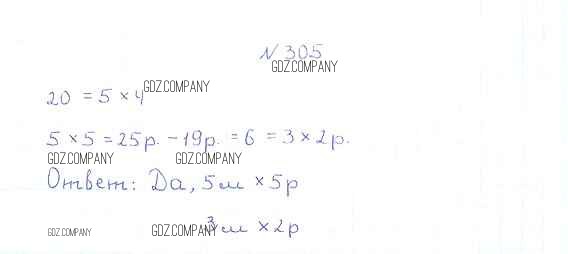 N 305
GDZ.COMPANY
20 = 5 × 4 GDZ.COMPANY
5 × 5 = 25р. - 19р. = 6 = 3 × 2р.
GDZ.COMPANY GDZ.COMPANY
Ответ: Да, 5м × 5р
3м × 2р
GDZ.COMPANY GDZ.COMPANY